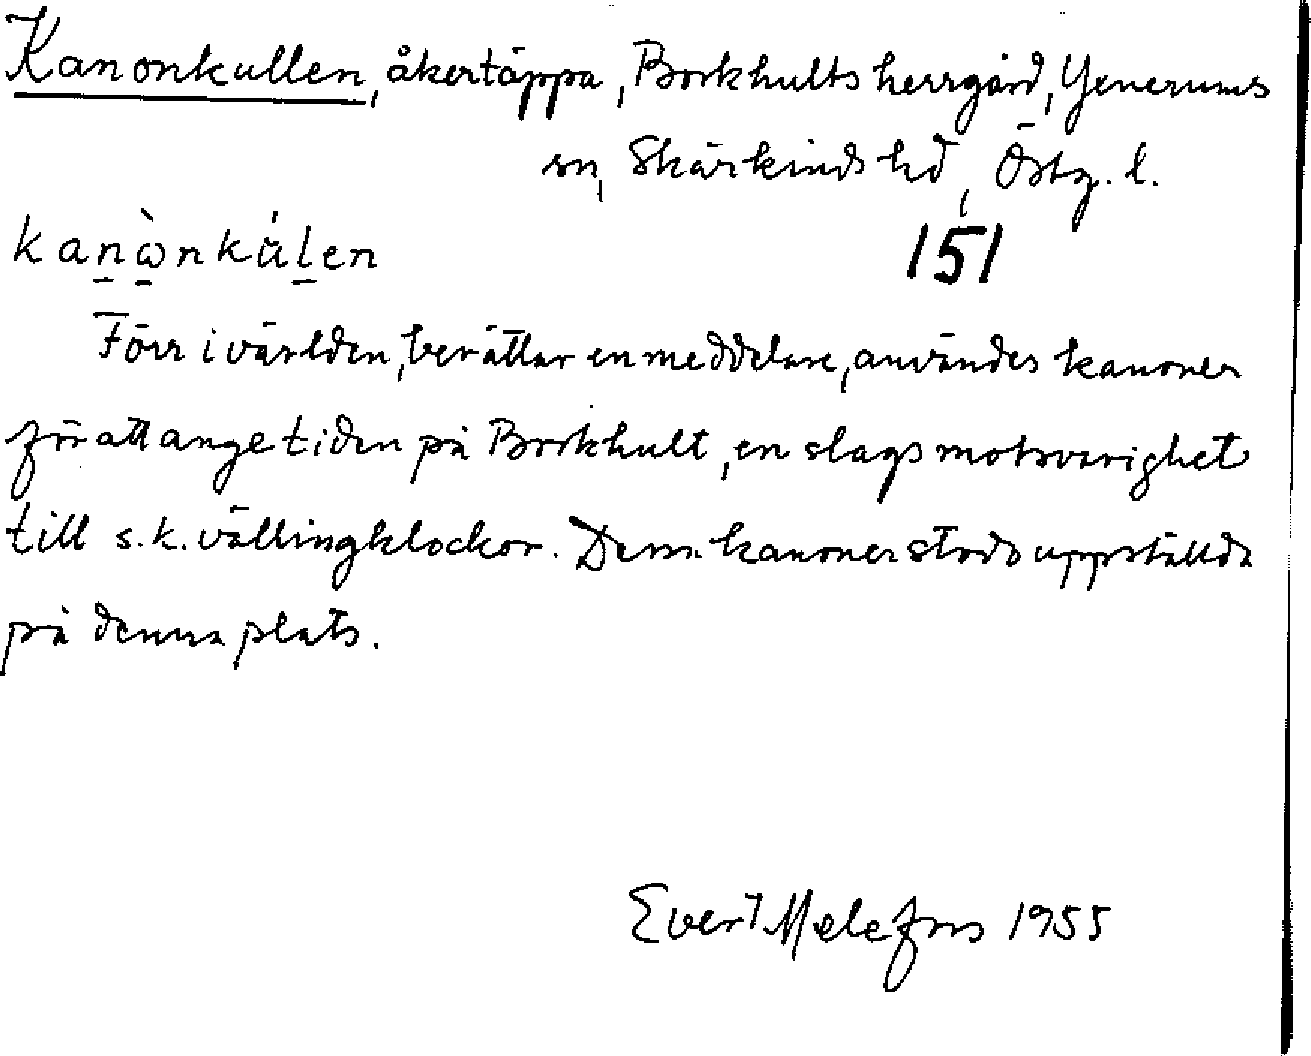 Kanonkullen, åkertäppa, Borkhults herrgård, Yxnerums
sn, Skärkinds hd, Östg. l.
kanὼnkúlen 151
Förr i världen, berättar en meddelare, användes kanoner
för att ange tiden på Borkhult, en slags motsvarighet
till s.k. vällingklockor. Dessa kanoner stodo uppställda
på denna plats.
Evert Melefors 1955